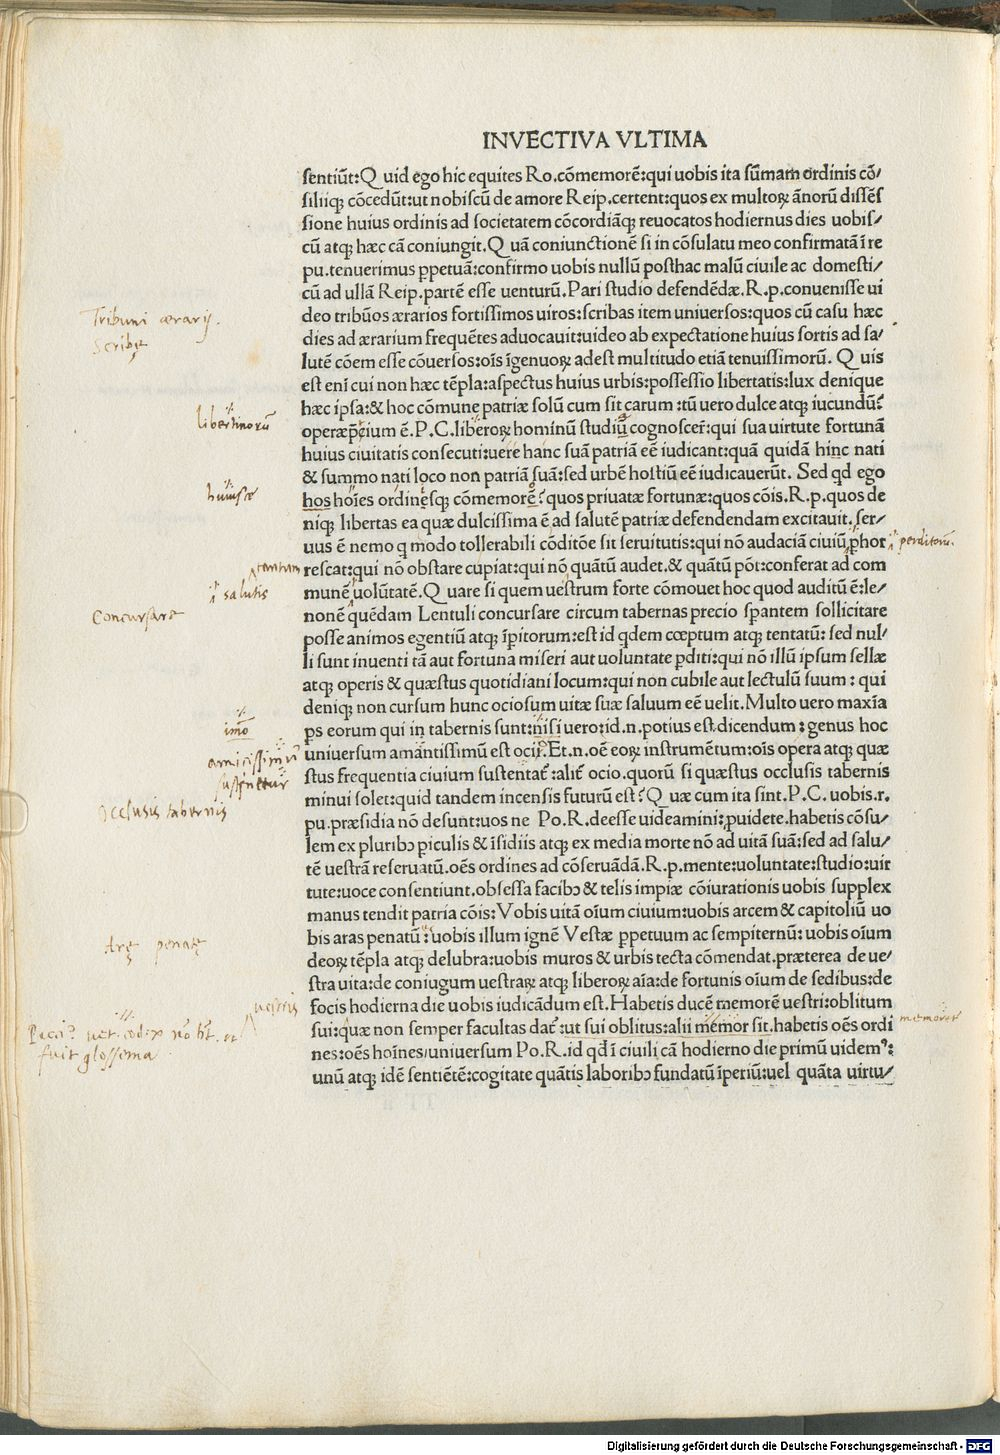 INVECTIVA VLTIMA
sentiūt:Q uid ego hic equites Ro.cōmemorē:qui uobis ita sūmam ordinis cō/
siliiqꝫ cōcedūt:ut nobiscū de amore Reip.certent:quos ex multoꝝ ānorū dissēs
sione huius ordinis ad societatem cōcordiāqꝫ reuocatos hodiernus dies uobis/
cū atqꝫ hæc cā coniungit.Q uā coniunctionē si in cōsulatu meo confirmatā ī re
pu.tenuerimus ꝑpetuā:confirmo uobis nullū posthac malū ciuile ac domesti/
cū ad ullā Reip.partē esse uenturū.Pari studio defendēdæ.R.p.conuenisse ui
Tribuni ærarij.
deo tribūos ærarios fortissimos uiros:scribas item uniuersos:quos cū casu hæc
Scribę
dies ad ærarium frequētes aduocauit:uideo ab expectatione huius sortis ad sa/
lutē cōem esse cōuersos:oīs īgenuoꝝ adest multitudo etiā tenuissimorū. Q uis
est enī cui non hæc tēpla:aspectus huius urbis:possessio libertatis:lux denique
hæc ipsa:& hoc cōmune patriæ solū cum sit carum :tū uero dulce atqꝫ iucundū?
libertinorū
operæp̄cium ē.P.C.liberoꝝ hominū studiū cognoscer̄:qui sua uirtute fortunā
huius ciuitatis consecuti:uere hanc suā patriā eē iudicant:quā quidā hinc nati
& summo nati loco non patriā suā:sed urbē hostiū eē iudicauerūt. Sed qd ego
huiusce
hos hoīes ordinēsqꝫ cōmemorē? quos priuatæ fortunæ:quos cōis.R.p.quos de
niqꝫ libertas ea quæ dulcissima ē ad salutē patriæ defendendam excitauit. ser/
uus ē nemo q modo tollerabili cōditōe sit seruitutis:qui nō audaciā ciuiū ꝑhor
perditorū.
tantum
rescat:qui nō obstare cupiat:qui nō quātū audet.& quātū pōt:conferat ad com
salutis
munē uolūtatē.Q uare si quem uestrum forte cōmouet hoc quod auditū ē:le/
Concursare
nonē quēdam Lentuli concursare circum tabernas precio spantem sollicitare
posse animos egentiū atqꝫ īpitorum:est id qdem cœptum atqꝫ tentatū: sed nul/
li sunt inuenti tā aut fortuna miseri aut uoluntate ꝑditi:qui nō illū ipsum sellæ
atqꝫ operis & quæstus quotidiani locum:qui non cubile aut lectulū suum : qui
denique non cursum hunc ociosum uitæ suæ saluum eē uelit.Multo uero maxīa
imō
ps eorum qui in tabernis sunt:nisi uero:id.n.potius est dicendum : genus hoc
amicissimū
uniuersum amantissimū est ocii.Et.n.oē eoꝝ instrumētum:oīs opera atqꝫ quæ
sustinetur
stus frequentia ciuium sustentat̄ :alit̄ ocio.quorū si quæstus occlusis tabernis
Occlusis tabernis
minui solet:quid tandem incensis futurū est?Q uæ cum ita sint.P.C.uobis.r.
pu.præsidia nō desunt:uos ne Po.R.deesse uideamini:ꝓuidete.habetis cōsu/
lem ex pluribꝰ piculis & īsidiis atqꝫ ex media morte nō ad uitā suā:sed ad salu/
tē uestrā reseruatū.oēs ordines ad cōseruādā.R.p.mente:uoluntate:studio:uir
tute:uoce consentiunt.obsessa facibꝰ & telis impiæ cōiurationis uobis supplex
manus tendit patria cōis:Vobis uitā oīum ciuium:uobis arcem & capitoliū uo
Aręę penatę
bis aras penatū :uobis illum ignē Vestæ ꝑpetuum ac sempiternū: uobis oīum
deoꝝ tēpla atqꝫ delubra:uobis muros & urbis tecta cōmendat.præterea de ue/
stra uita:de coniugum uestraꝝ atqꝫ liberoꝝ aīa:de fortunis oīum de sedibus:de
uestris
focis hodierna die uobis iudicādum est.Habetis ducē memorē uestri:oblitum
memoret
sui:quæ non semper facultas dat̄ :ut sui oblitus:alii memor sit.habetis oēs ordi
uet. cod.
fuit glossema
nes:oēs hoīnes:uniuersum Po.R.id qd ī ciuili cā hodierno die primū uidemꝰ:
unū atqꝫ idē sentiētē:cogitate quātis laboribꝰ fundatū īperiū:uel quāta uirtu/
Digitalisierung gefördert durch die Deutsche Forschungsgemeinschaft - DFG